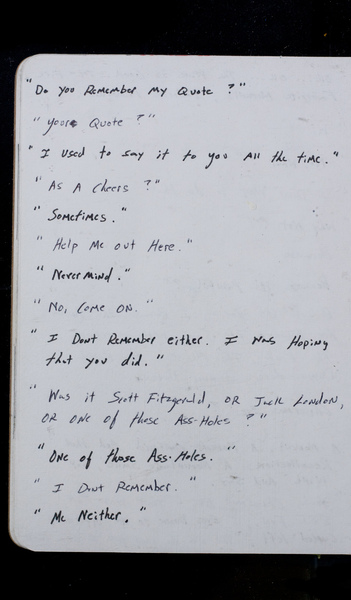 "Do you Remember My Quote?"
"your Quote?"
"I used to say it to you All the time."
"As A Cheers?"
"Sometimes."
"Help Me out Here."
"Nevermind."
"No, Come On."
"I Dont Remember either. I Was Hoping
that you did."
"Was it Scott Fitzgerald, OR Jack London,
OR One of those Ass-Holes?"
"One of those Ass-Holes."
"I Dont Remember."
"Me Neither."